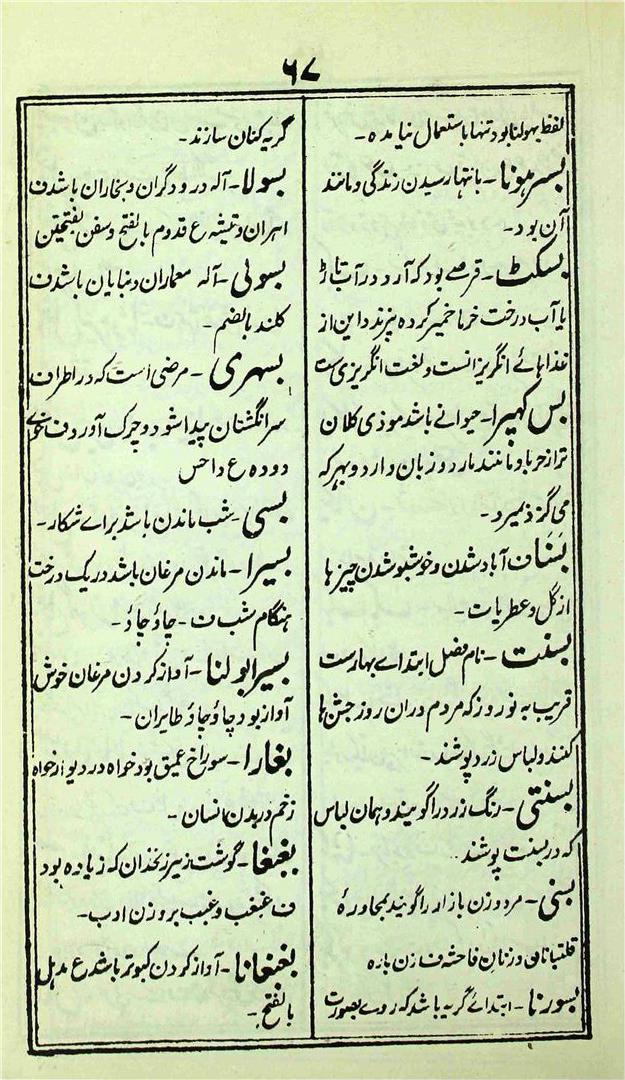 ۶۷
لفظ بهولنا بود تنها باستعمال نیامده -
بسر ہونا - بانتہا رسیدن زندگی و مانند
آن بود -
بسکٹ - قرصے بود که آرد در آب تاڑ
یا آب درخت خرما خمیر کرده پزند و این از
غذاہائے انگریزانست و لغت انگریزی ست
بس کهپرا - حیوانے باشد موذی کلان
تر از حربا و مانند مار دو زبان دارد و بہر که
می گزد بمیرد -
بسنا ف آباد شدن و خوشبو شدن چیزہا
از گل و عطریات -
بسنت - نام فصل ابتداے بہار ست
قریب به نوروز که مردم دران روز جشن ہا
کنند و لباس زرد پوشند -
بسنتی - رنگ زرد را گویند و ہمان لباس
که در بسنت پوشند -
بسنی - مرد و زن بازار را گویند بمحاورهٔ
قلتبانان و زنان فاحشه ف زن باره
بسورنا - ابتدائے گریه باشد که روے بصورت
گریه کنان سازند -
بسولا - آله درودگران و نجاران باشد ف
اہران و تیشه ع قدوم بالفتح و سفن بفتحتین
بسولی - آله معماران و بنایان باشد ف
کلند بالضم -
بسہری - مرضی است که در اطراف
سرانگشتان پیدا شود و چرک آورد ف
دوده ع داحس
بسی - شب ماندن باشد براے شکار -
بسیرا - ماندن مرغان باشد در یک درخت
ہنگام شب ف - چاؤ چاؤ -
بسیرا بولنا - آواز کردن مرغان خوش
آواز بود چاؤ چاؤ طایران -
بغارا - سوراخ عمیق بود خواه در دیوار خواه
زخم در بدن انسان -
بغبغا - گوشت زیر زنخدان که زیاده بود
ف غبغب و غبب بروزن ادب -
بغبغانا - آواز کردن کبوتر باشد ع ہدیل
بالفتح -